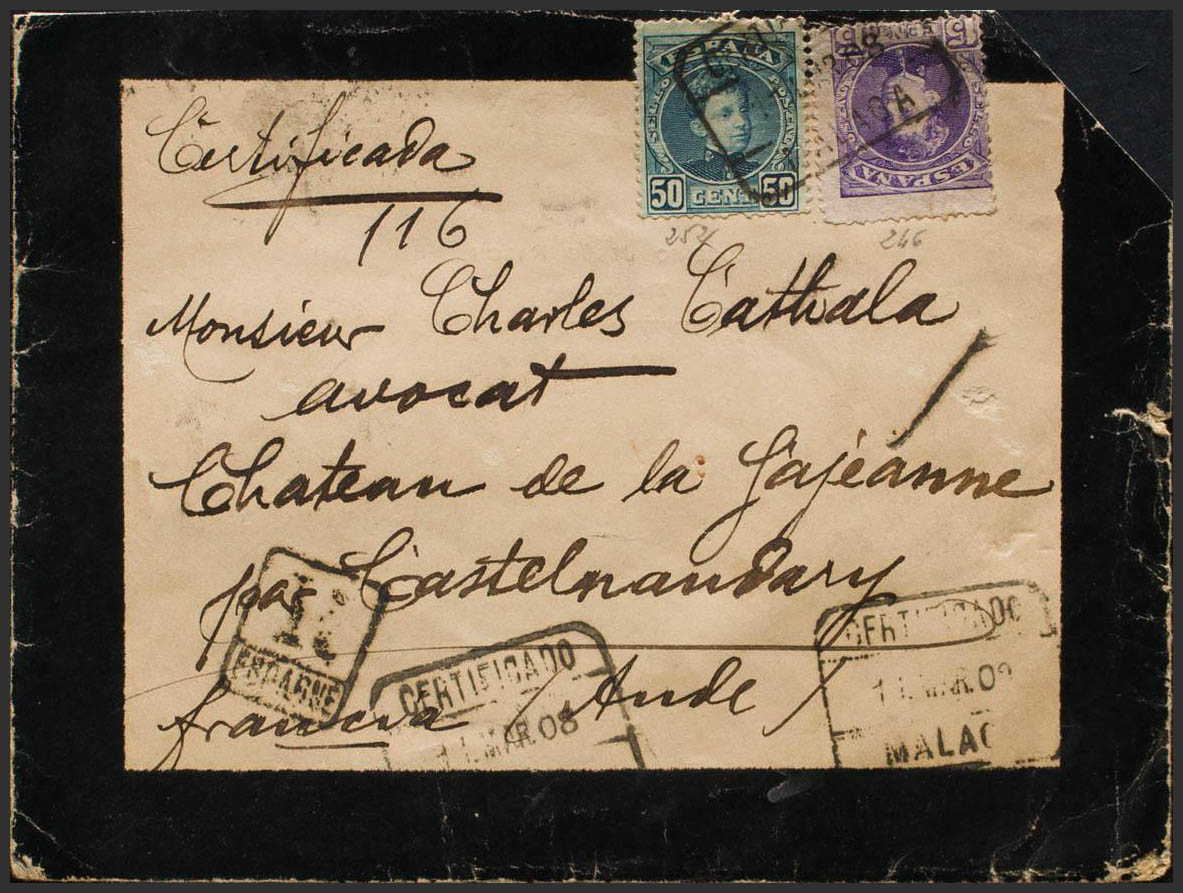 ESPAÑA
50 CENT. 50
15
ESPAÑA
MALAGA
252
246
Certificada
116
Monsieur Charles Cathala
avocat
Chateau de la Gajéanne
par Castelnaudary
francia / Aude /
R
ESPAGNE
CERTIFICADO
11 MAR. 08
CERTIFICADO
11 MAR. 08
MALAG